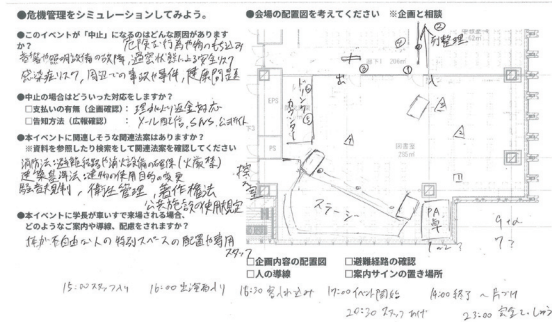 ●危機管理をシミュレーションしてみよう。
●このイベントが「中止」になるのはどんな原因があります
か？ 危険な行為や物のもち込み
音響や照明設備の故障、過密状態による安全リスク
感染症リスク、周辺での事故や事件、健康問題
●中止の場合はどういった対応をしますか？
□支払いの有無（企画確認）： 理由により返金対応
□告知方法（広報確認）： メール配信、SNS、公式サイト
●本イベントに関連しそうな関連法案はありますか？
※資料を参照したり検索をして関連法案を確認してください
消防法：避難経路や消火設備の確保
建築基準法：建物の使用目的の変更
騒音規制、衛生管理、著作権法
公共施設の使用規定
●本イベントに学長が車いすで来場される場合、
どのようなご案内や導線、配慮をされますか？
体が不自由な人の特別スペースの配置や専用
スタッフ
●会場の配置図を考えてください ※企画と相談
列整理
出
入
ドリンクカウンター
EPS
図書室
控え室
ステージ
PA
卓
□企画内容の配置図 □避難経路の確認
□人の導線 □案内サインの置き場所
15:00スタッフ入り 16:00出演者入り 16:30 客入れ込み 17:00イベント開始 19:00終了 〜片づけ
20:30 スタッフ
23:00 完全